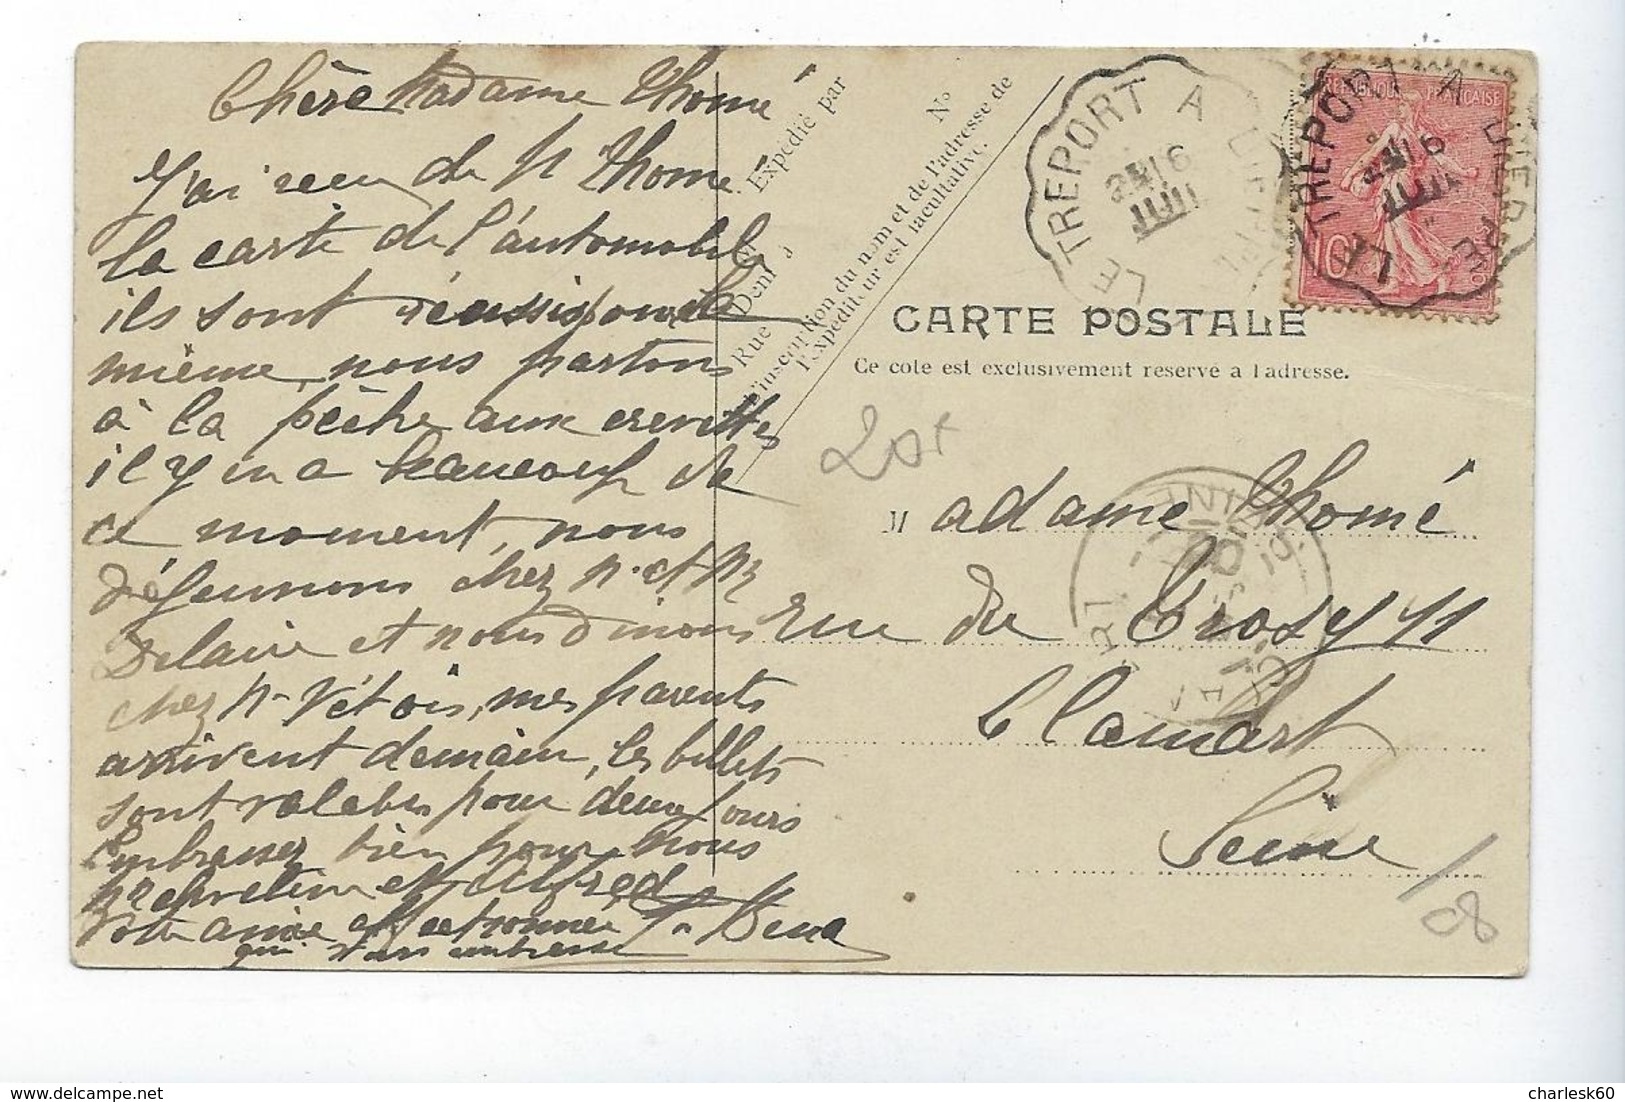 Chère Madame Thomé
J'ai reçu de M Thomé
la carte de l'automobile
ils sont
même, nous partons
à la pêche aux crevettes
il y en a beaucoup de
ce moment, nous
déjeunons chez M. et Me
Delaire et nous dinons
chez M. Vétois, mes parents
arrivent demain, les billets
sont valables pour deux jours
Embrassez bien pour nous
et Alfred
Votre amie
qui vous embrasse
Expédié par
Rue
Demt à
No
L'inscription du nom et de l'adresse de
l'expéditeur est facultative.
LE TREPORT A
16
JUIL
REPUBLIQUE FRANÇAISE
10
LE TREPORT A DIEPPE
16
JUIL
CARTE POSTALE
Ce coté est exclusivement reservé a l'adresse.
20f
Madame Thomé
rue du Trosy 11
Clamart
Seine
CLAMART SEINE
/08
charlesk60